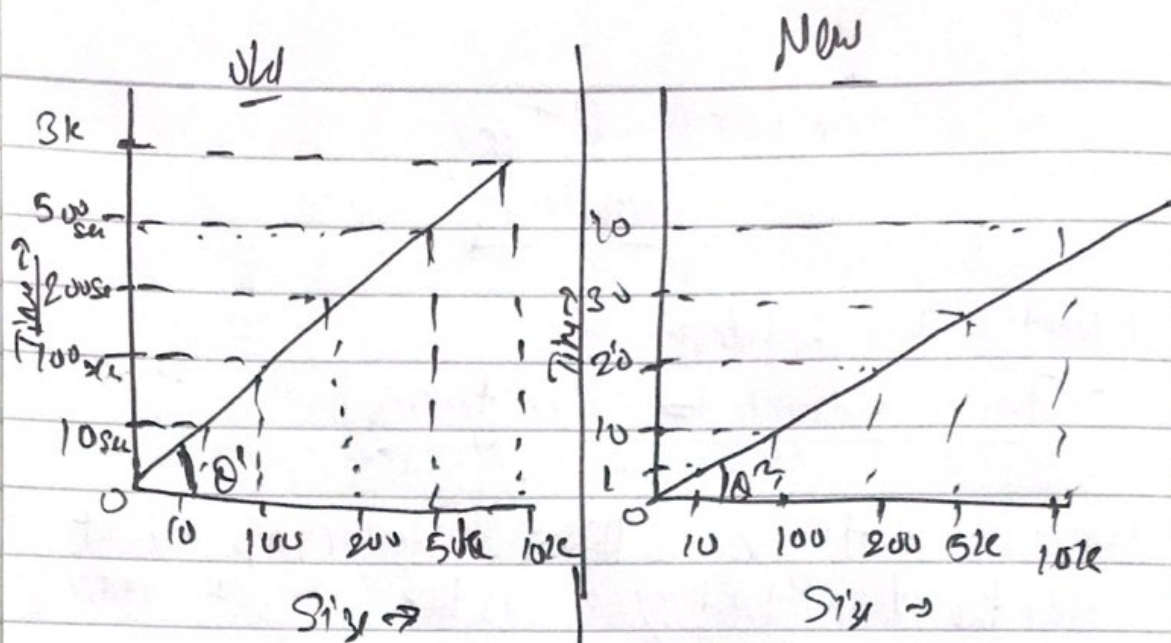 Old
3k
500
sec
200 sec
100
sec
10 sec
0
Time →
θ1
10 100 200 500k 10k
Size →
New
40
30
20
10
1
0
Time →
θ2
10 100 200 5k 10k
Size →